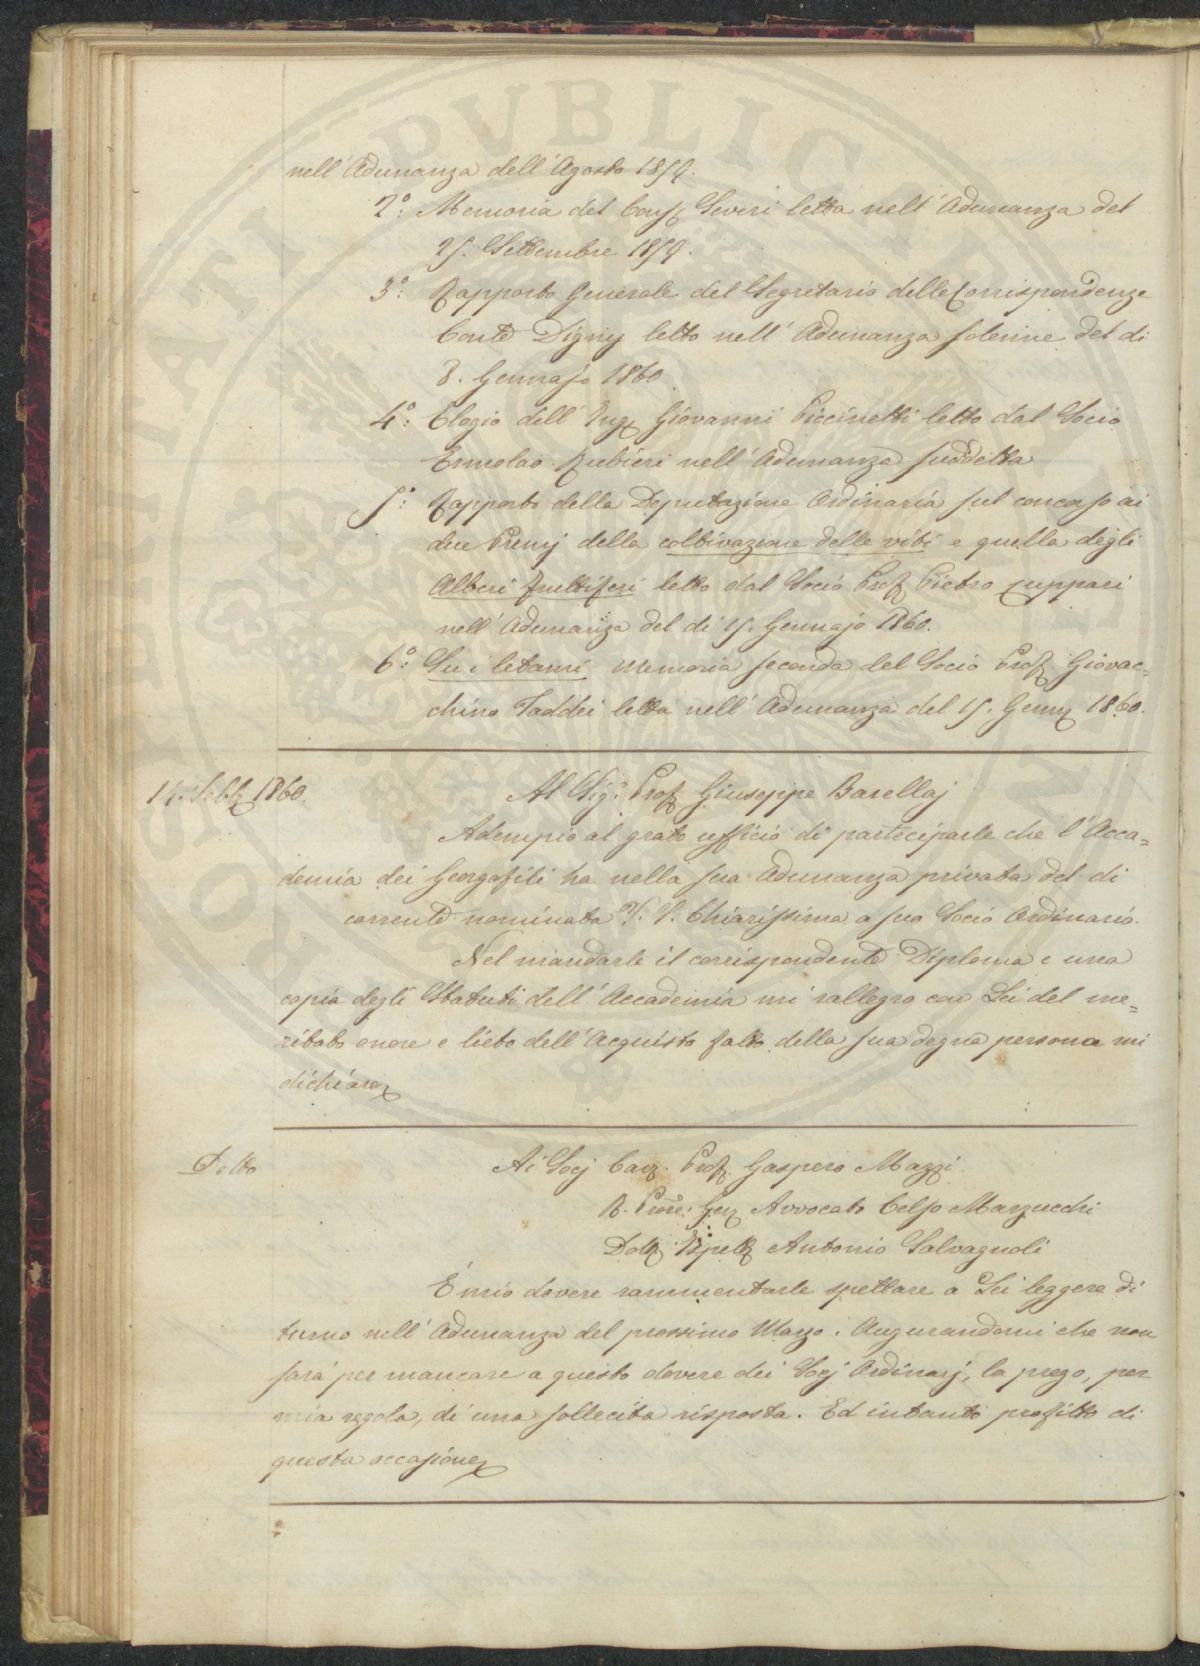 nell'Adunanza dell'Agosto 1859.
2°: Memoria del Cons. Severi letta nell'Adunanza del
25. Settembre 1859.
3°: Rapporto Generale del Segretario delle Corrispondenze
Conte Digny letto nell'Adunanza solenne del di
8. Gennajo 1860
4°: Elogio dell'Ing. Giovanni Piccinetti letto dal Socio
Ermolao Rubieri nell'Adunanza suddetta
5°: Rapporto della Deputazione Ordinaria sul concorso ai
due Premj della coltivazione delle viti e quella degli
Alberi fruttiferi letto dal Socio Prof. Pietro Cuppari
nell'Adunanza del di 15. Gennajo 1860.
6°: Su i letami memoria seconda del Socio Prof. Giovac=
chino Taddei letta nell'Adunanza del 15. Genn. 1860.
14. Febb. 1860.
Al Sig.r Prof. Giuseppe Barellaj
Adempio al grato ufficio di parteciparle che l'Acca=
demia dei Georgofili ha nella sua Adunanza privata del di
corrente nominata V. S. Chiarissima a suo Socio Ordinario.
Nel mandarle il corrispondente Diploma e una
copia degli Statuti dell'Accademia mi rallegro con Lei del me=
ritato onore e lieto dell'Acquisto fatto della sua degna persona mi
dichiaro
Detto
Ai Socj Cav. Prof. Gaspero Mazzi
R. Proc. Gen. Avvocato Celso Marzucchi
Dott. Ispett. Antonio Salvagnoli
È mio dovere rammentarle spettare a Lei leggere di
turno nell'Adunanza del prossimo Marzo. Augurandomi che non
sarà per mancare a questo dovere dei Socj Ordinarj, la prego, per
mia regola, di una sollecita risposta. Ed intanto profitto di
questa occasione
POSTERITATI PVBLICAE PROSPERITATI